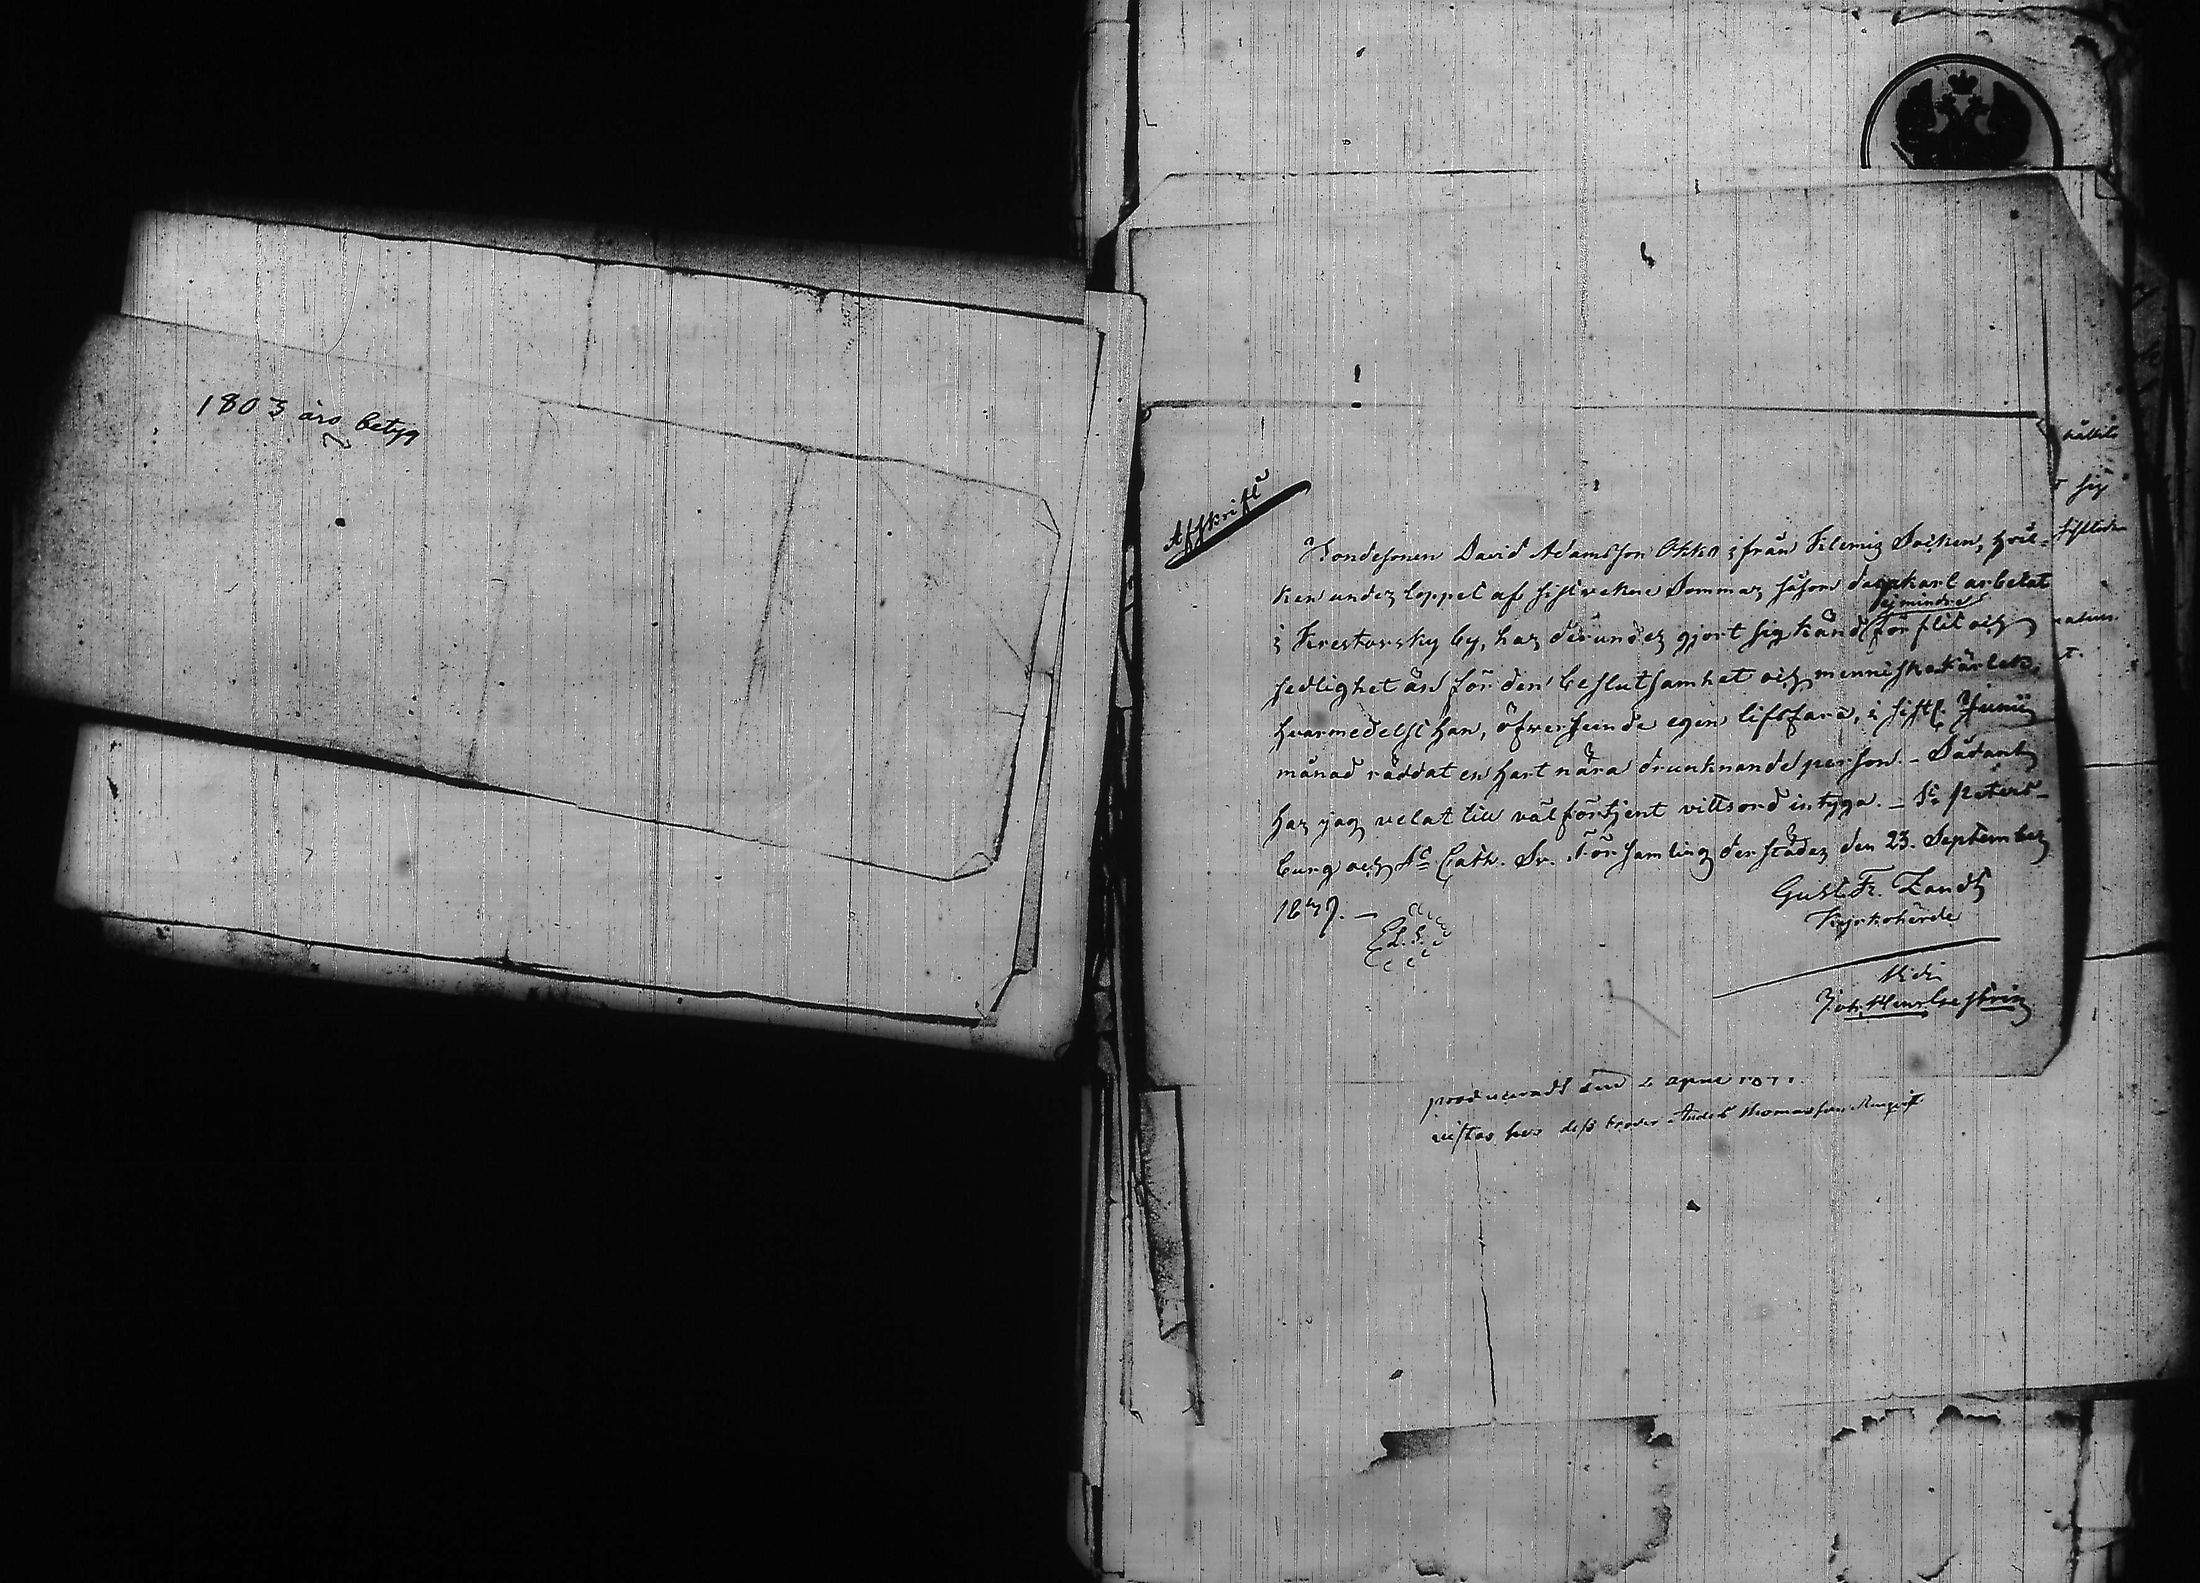 1803 års betyg
Affskrift
Bondesonen David Adamsson Okko ifrån Kilemig Socken, hvil-
ken under loppet af sistvekne Sommar såsom dagakarl arbetat
i Krestovsky by, har derunder gjort sig känd ej mindre för flit och
sedlighet än för den beslutsamhet och menniskokärlek,
hvarmedelst han, öfverseende egen lifsfara, i sistl. Junii
månad räddat en hart nära drunknande person. - Sådant
har jag velat till välförtjent vittsord intyga. - St. Peters-
burg och St. Cath. Sv. Församling derstädes den 23. September
1847. -
L.S.
Gust. Fr. Zandt
Kyrkoherde
Vidi
Joh. Henr.
produceradt den 2 April
vistas hos dess broder Anders Thomasson
hållit
sig